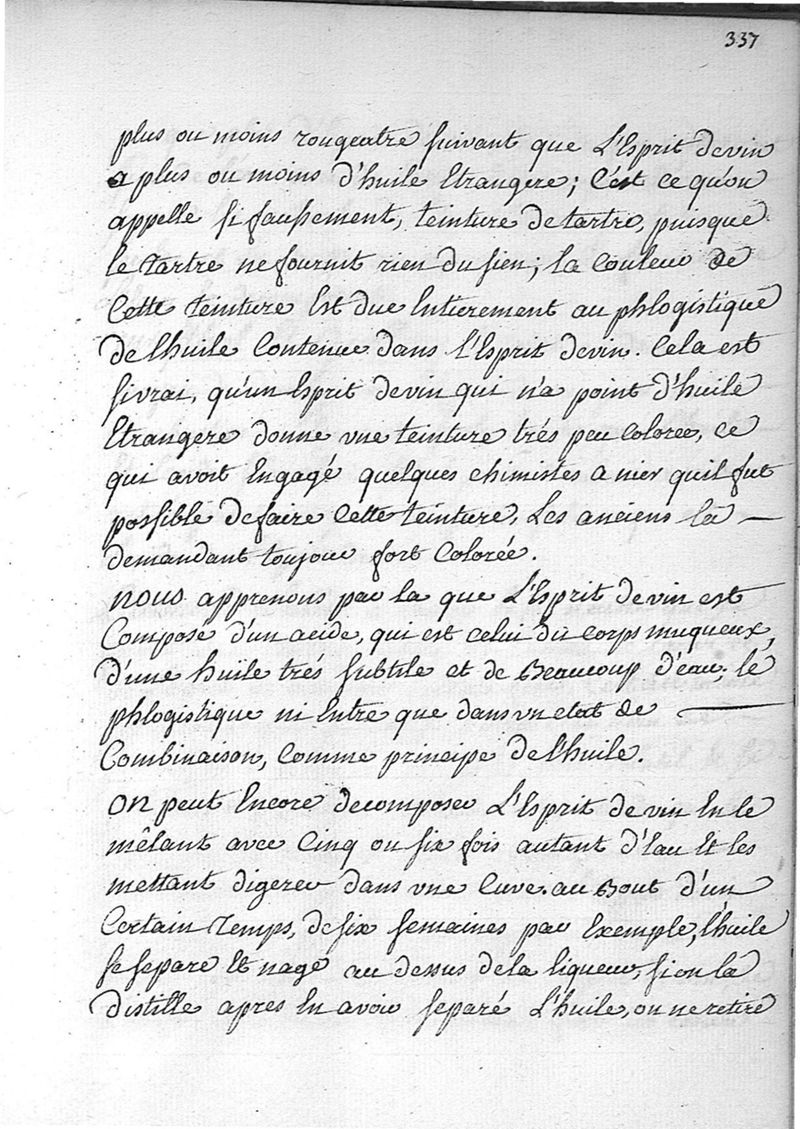 337
plus ou moins rougeatre suivant que L'Esprit de vin
a plus ou moins d'huile Etrangere; C'est ce qu'on
appelle si faussement, teinture de tartre, puisque
le tartre ne fournit rien du sien; la Couleur de
Cette teinture Est due Entierement au phlogistique
de l'huile Contenue dans l'Esprit de vin. Cela est
si vrai, qu'un Esprit de vin qui n'a point d'huile
Etrangere donne une teinture trés peu Colorée, ce
qui avoit Engagé quelques chimistes a nier quil fut
possible de faire Cette teinture, Les anciens la —
demandant toujour fort Colorée.
nous apprenons par la que L'Esprit de vin est
Composé d'un acide, qui est celui du corps muqueux,
d'une huile trés subtile et de Beaucoup d'eau; le
phlogistique ni Entre que dans un etat de —
Combinaison, Comme principe de l'huile.
On peut Encore decomposer L'Esprit de vin En le
mêlant avec Cinq ou six fois autant d'Eau Et les
mettant digerer dans une Cuve. au Bout d'un
Certain Temps, de six semaines par Exemple, l'huile
se separe Et nage au dessus de la liqueur, si on la
distille apres En avoir separé L'huile, on ne retire